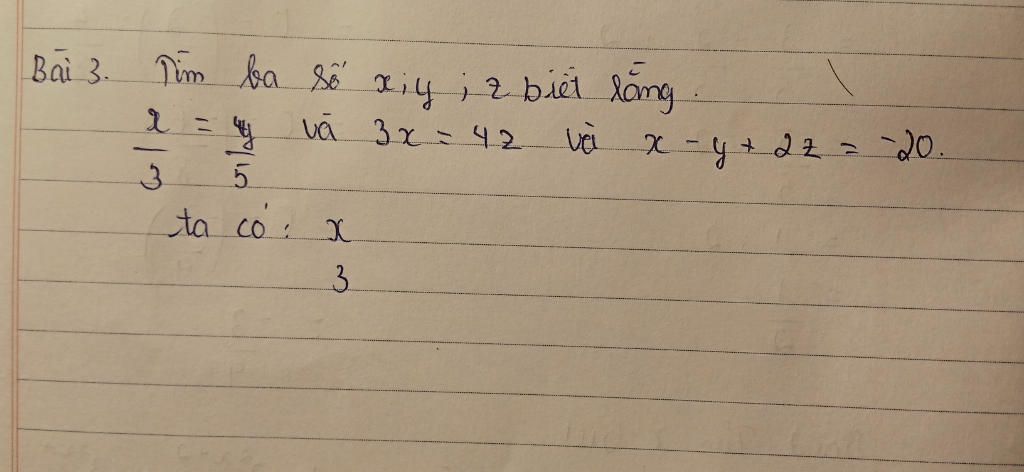 Bài 3. Tìm ba số x; y ; z biết rằng.
x/3 = y/5 và 3x = 4z và x - y + 2z = -20.
ta có: x
3